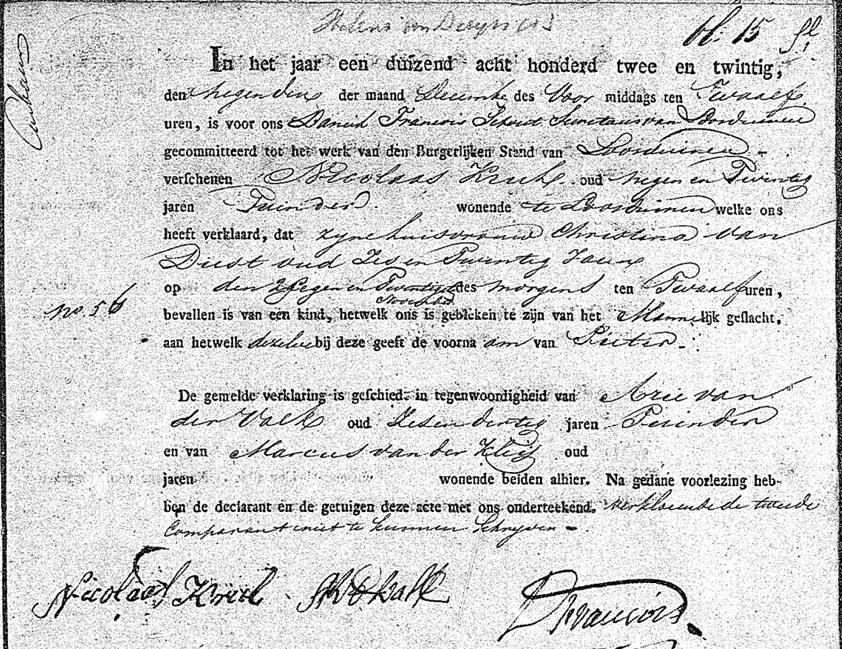 Bl: 15
In het jaar een duizend acht honderd twee en twintig,
den negenden der maand Decemb des Voor middags ten Twaalf
uren, is voor ons Daniel Francois Secretaris van Loosduinen
gecommitteerd tot het werk van den Burgerlijken Stand van Loosduinen
verschenen Nicolaas Krul oud negen en Twintig
jaren Tuinder wonende te Loosduinen welke ons
heeft verklaard, dat zyne huisvrouw Christina van
Diest oud Zes en Twintig Jaar
op den Negen en Twintigste November des morgens ten Twaalf uren,
no. 56
bevallen is van een kind, hetwelk ons is gebleken te zijn van het Mannelijk geslacht,
aan hetwelk dezelve bij deze geeft de voornaam van Pieter.
De gemelde verklaring is geschied in tegenwoordigheid van Arie van
der Valk oud Zes en dertig jaren Tuinder
en van Marcus van der oud
jaren wonende beiden alhier. Na gedane voorlezing heb-
ben de declarant en de getuigen deze acte met ons onderteekend. verklarende de tweede
Comparant niet te kunnen schryven.
Nicolaas Krul Valk DFrancois